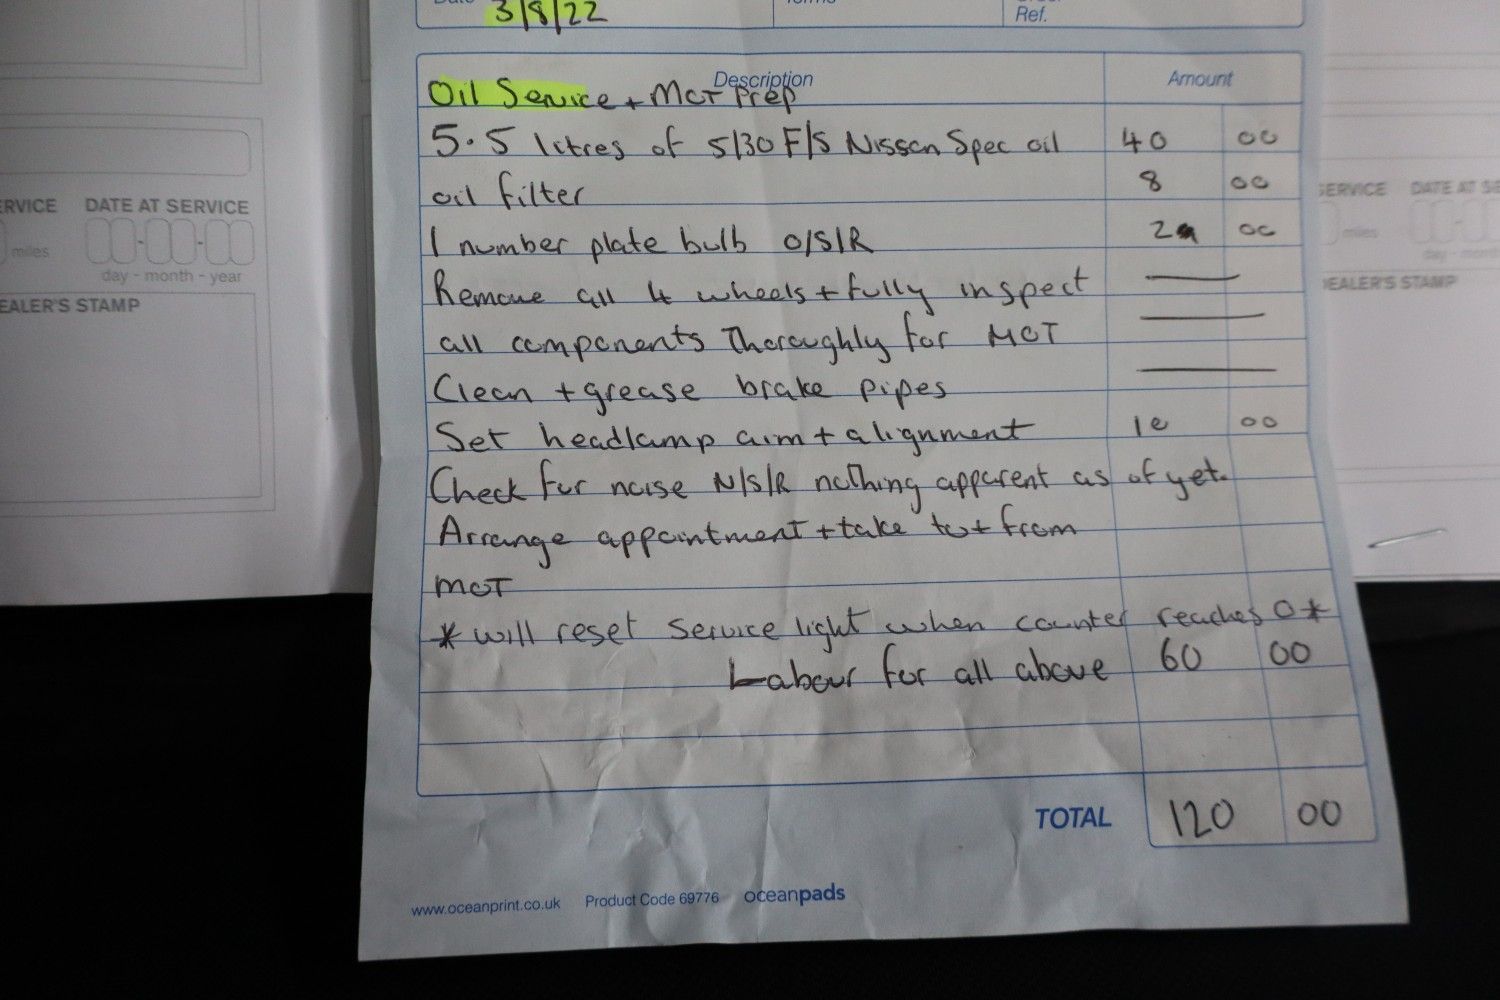 3/8/22
Ref.
Description Amount
Oil Service + MOT Prep
5.5 litres of 5/30 F/S Nissan Spec oil 40 00
oil filter 8 00
1 number plate bulb O/S/R 2 00
Remove all 4 wheels + fully inspect
all components Thoroughly for MOT
Clean + grease brake pipes
Set headlamp aim + alignment 10 00
Check for noise N/S/R nothing apparent as of yet.
Arrange appointment + take to + from
MOT
* will reset service light when counter reaches 0 *
Labour for all above 60 00
TOTAL 120 00
www.oceanprint.co.uk Product Code 69776 oceanpads
DATE AT SERVICE
miles
day - month - year
SERVICE
miles